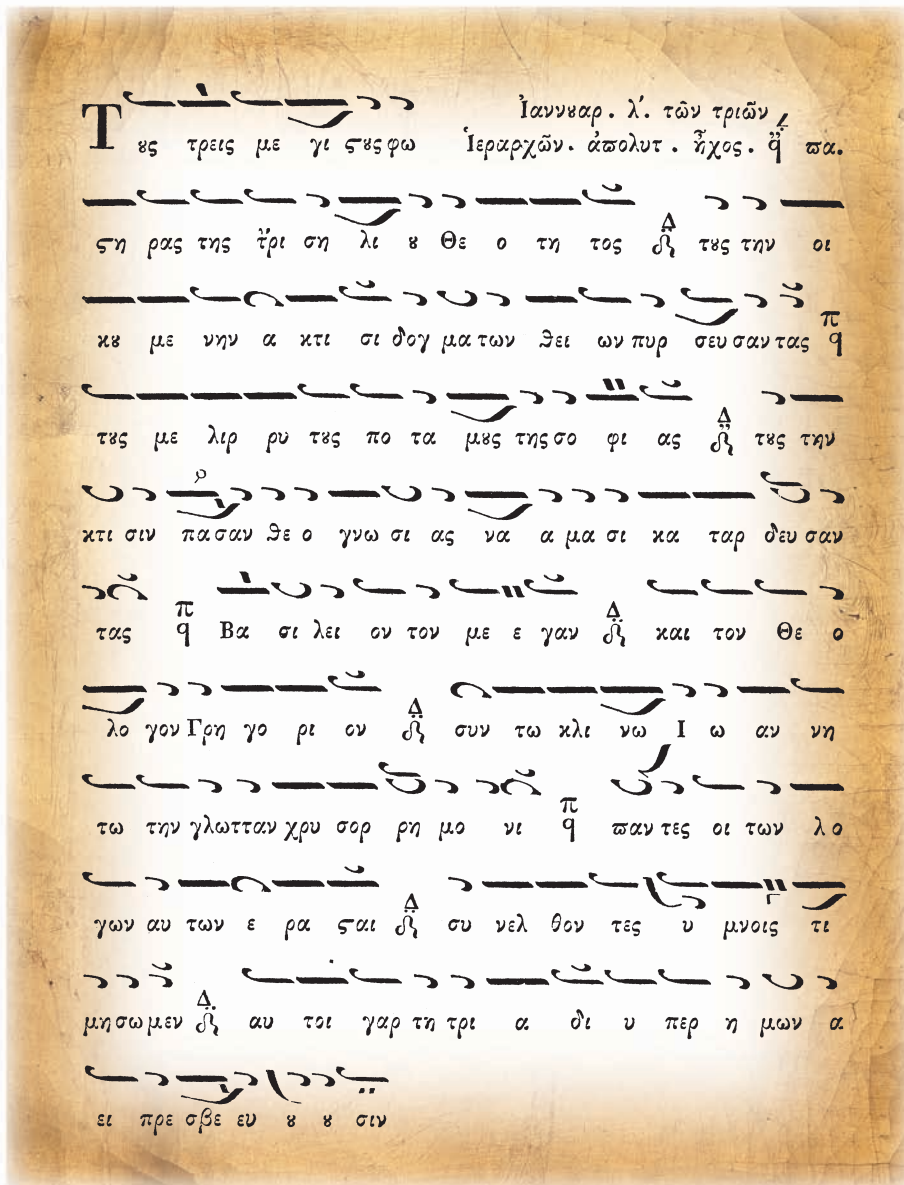 Ἰαννȣαρ . λ΄. τῶν τριῶν
Τȣς τρεις με γι ϛȣς φω Ἱεραρχῶν . ἀπολυτ . ἦχος . ϖα.
ϛη ρας της τρι ση λι ȣ Θε ο τη τος Δ τȣς την οι
κȣ με νην α κτι σι δογ μα των θει ων πυρ σευ σαν τας π
τȣς με λιρ ρυ τȣς πο τα μȣς της σο φι ας Δ τȣς την
κτι σιν πα σαν θε ο γνω σι ας να α μα σι κα ταρ δευ σαν
τας π Βα σι λει ον τον με ε γαν Δ και τον Θε ο
λο γον Γρη γο ρι ον Δ συν τω κλι νω Ι ω αν νη
τω την γλωτταν χρυ σορ ρη μο νι π ϖαν τες οι των λο
γων αυ των ε ρα ϛαι Δ συ νελ θον τες υ μνοις τι
μη σω μεν Δ αυ τοι γαρ τη τρι α δι υ περ η μων α
ει πρε σβε ευ ȣ ȣ σιν